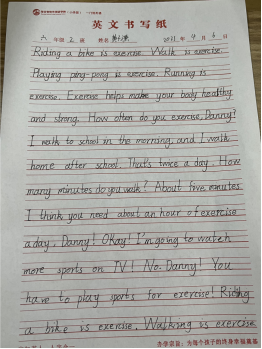 英文书写纸
六 年级 2 班 姓名 2021 年 4 月 6 日
Riding a bike is exercise. Walk is exercise.
Playing ping-pong is exercise. Running is
exercise. Exercise helps make your body healthy
and strong. How often do you exercise, Danny?
I walk to school in the morning, and I walk
home after school. That's twice a day. How
many minutes do you walk? About five minutes
I think you need about an hour of exercise
a day, Danny! Okay! I'm going to watch
more sports on TV! No, Danny! You
have to play sports for exercise! Riding
a bike is exercise. Walking is exercise
办学宗旨:为每个孩子的终身幸福奠基